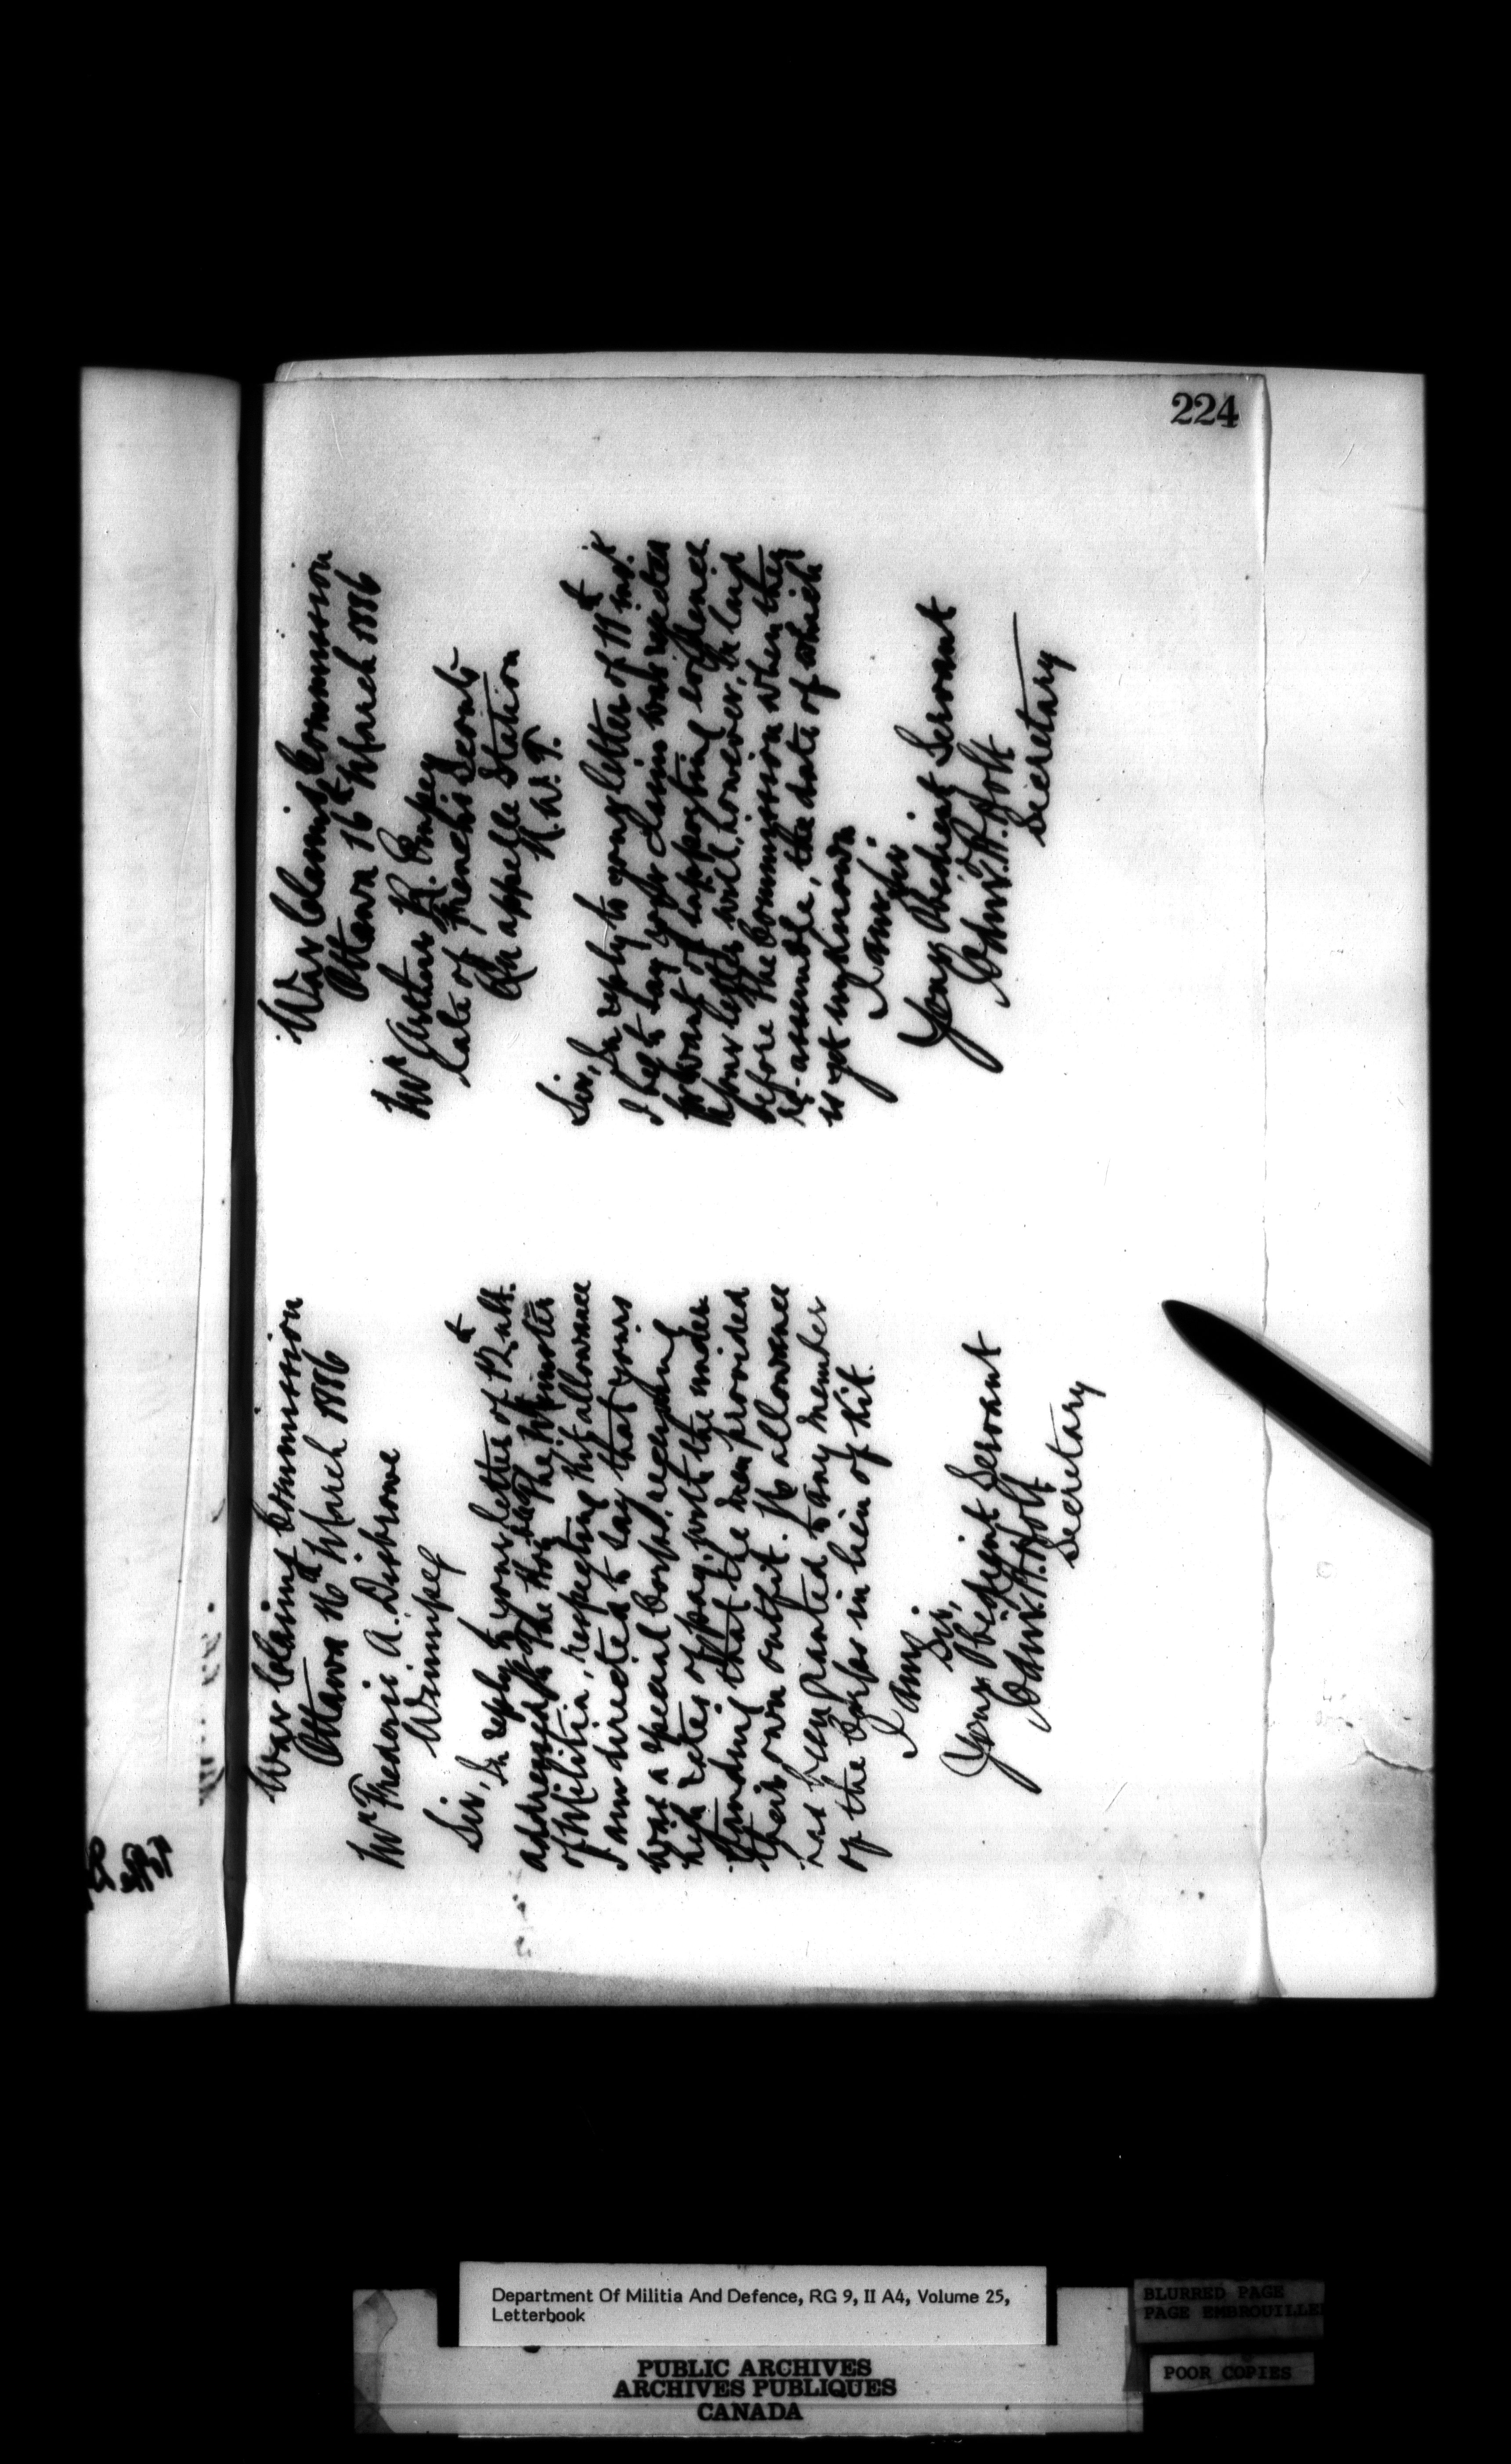 224
War Claims Commission
Ottawa 16th March 1886
Mr Frederic A. Disbrowe
Winnipeg
Sir,
In reply to your letter of 12th ult.
addressed to The Hon. The Minister
of Militia, respecting Kit allowance
I am directed to say that yours
was a special Corps, receiving
high rates of pay, with the under
standing that the men provided
their own outfit. No allowance
has been granted to any member
of the Corps in lieu of Kit.
I am,
Sir,
Your Obedient Servant
Edw. A. Holt
Secretary
War Claims Commission
Ottawa 16th March 1886
Mr Arthur R. Empey
late of French's Scouts
Qu'appelle Station
N.W.T.
Sir,
In reply to your letter of 11th inst.
I beg to say your claim was rejected
for want of supporting evidence
Your letter will, however, be laid
before The Commission when they
re-assemble, the date of which
is yet unknown
I am Sir
Your Obedient Servant
Edw. A. Holt
Secretary
Department Of Militia And Defence, RG 9, II A4, Volume 25,
Letterbook
PUBLIC ARCHIVES
ARCHIVES PUBLIQUES
CANADA
BLURRED PAGE
PAGE EMBROUILLE
POOR COPIES